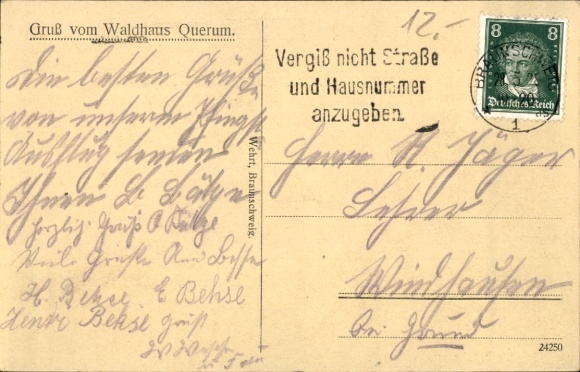 Gruß vom Waldhaus Querum.
12.-
Vergiß nicht Straße
und Hausnummer
anzugeben.
8 8
Deutsches Reich
BRAUNSCHWEIG
1
Die besten Grüße
von unserem Pfingst
Ausflug senden
Ihnen B
herzlich Gruß
Viele Grüße
H. Behse E Behse
Henry Behse grüßt
Wehrt, Braunschweig.
Herrn A. Jäger
Lehrer
Windhausen
bei Grund
24250